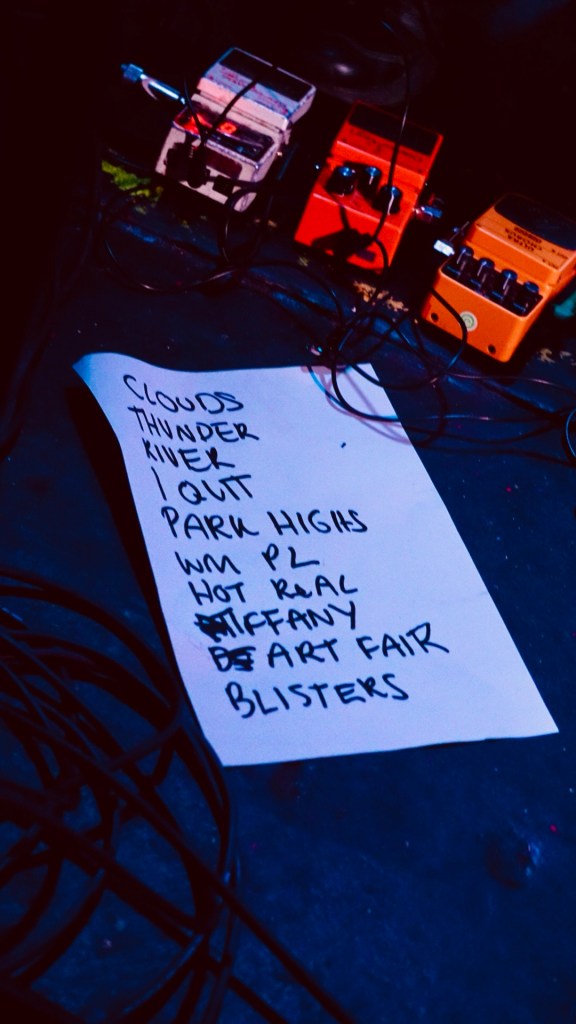 CLOUDS
THUNDER
RIVER
I QUIT
PARK HIGHS
WM PL
HOT REAL
TIFFANY
ART FAIR
BLISTERS